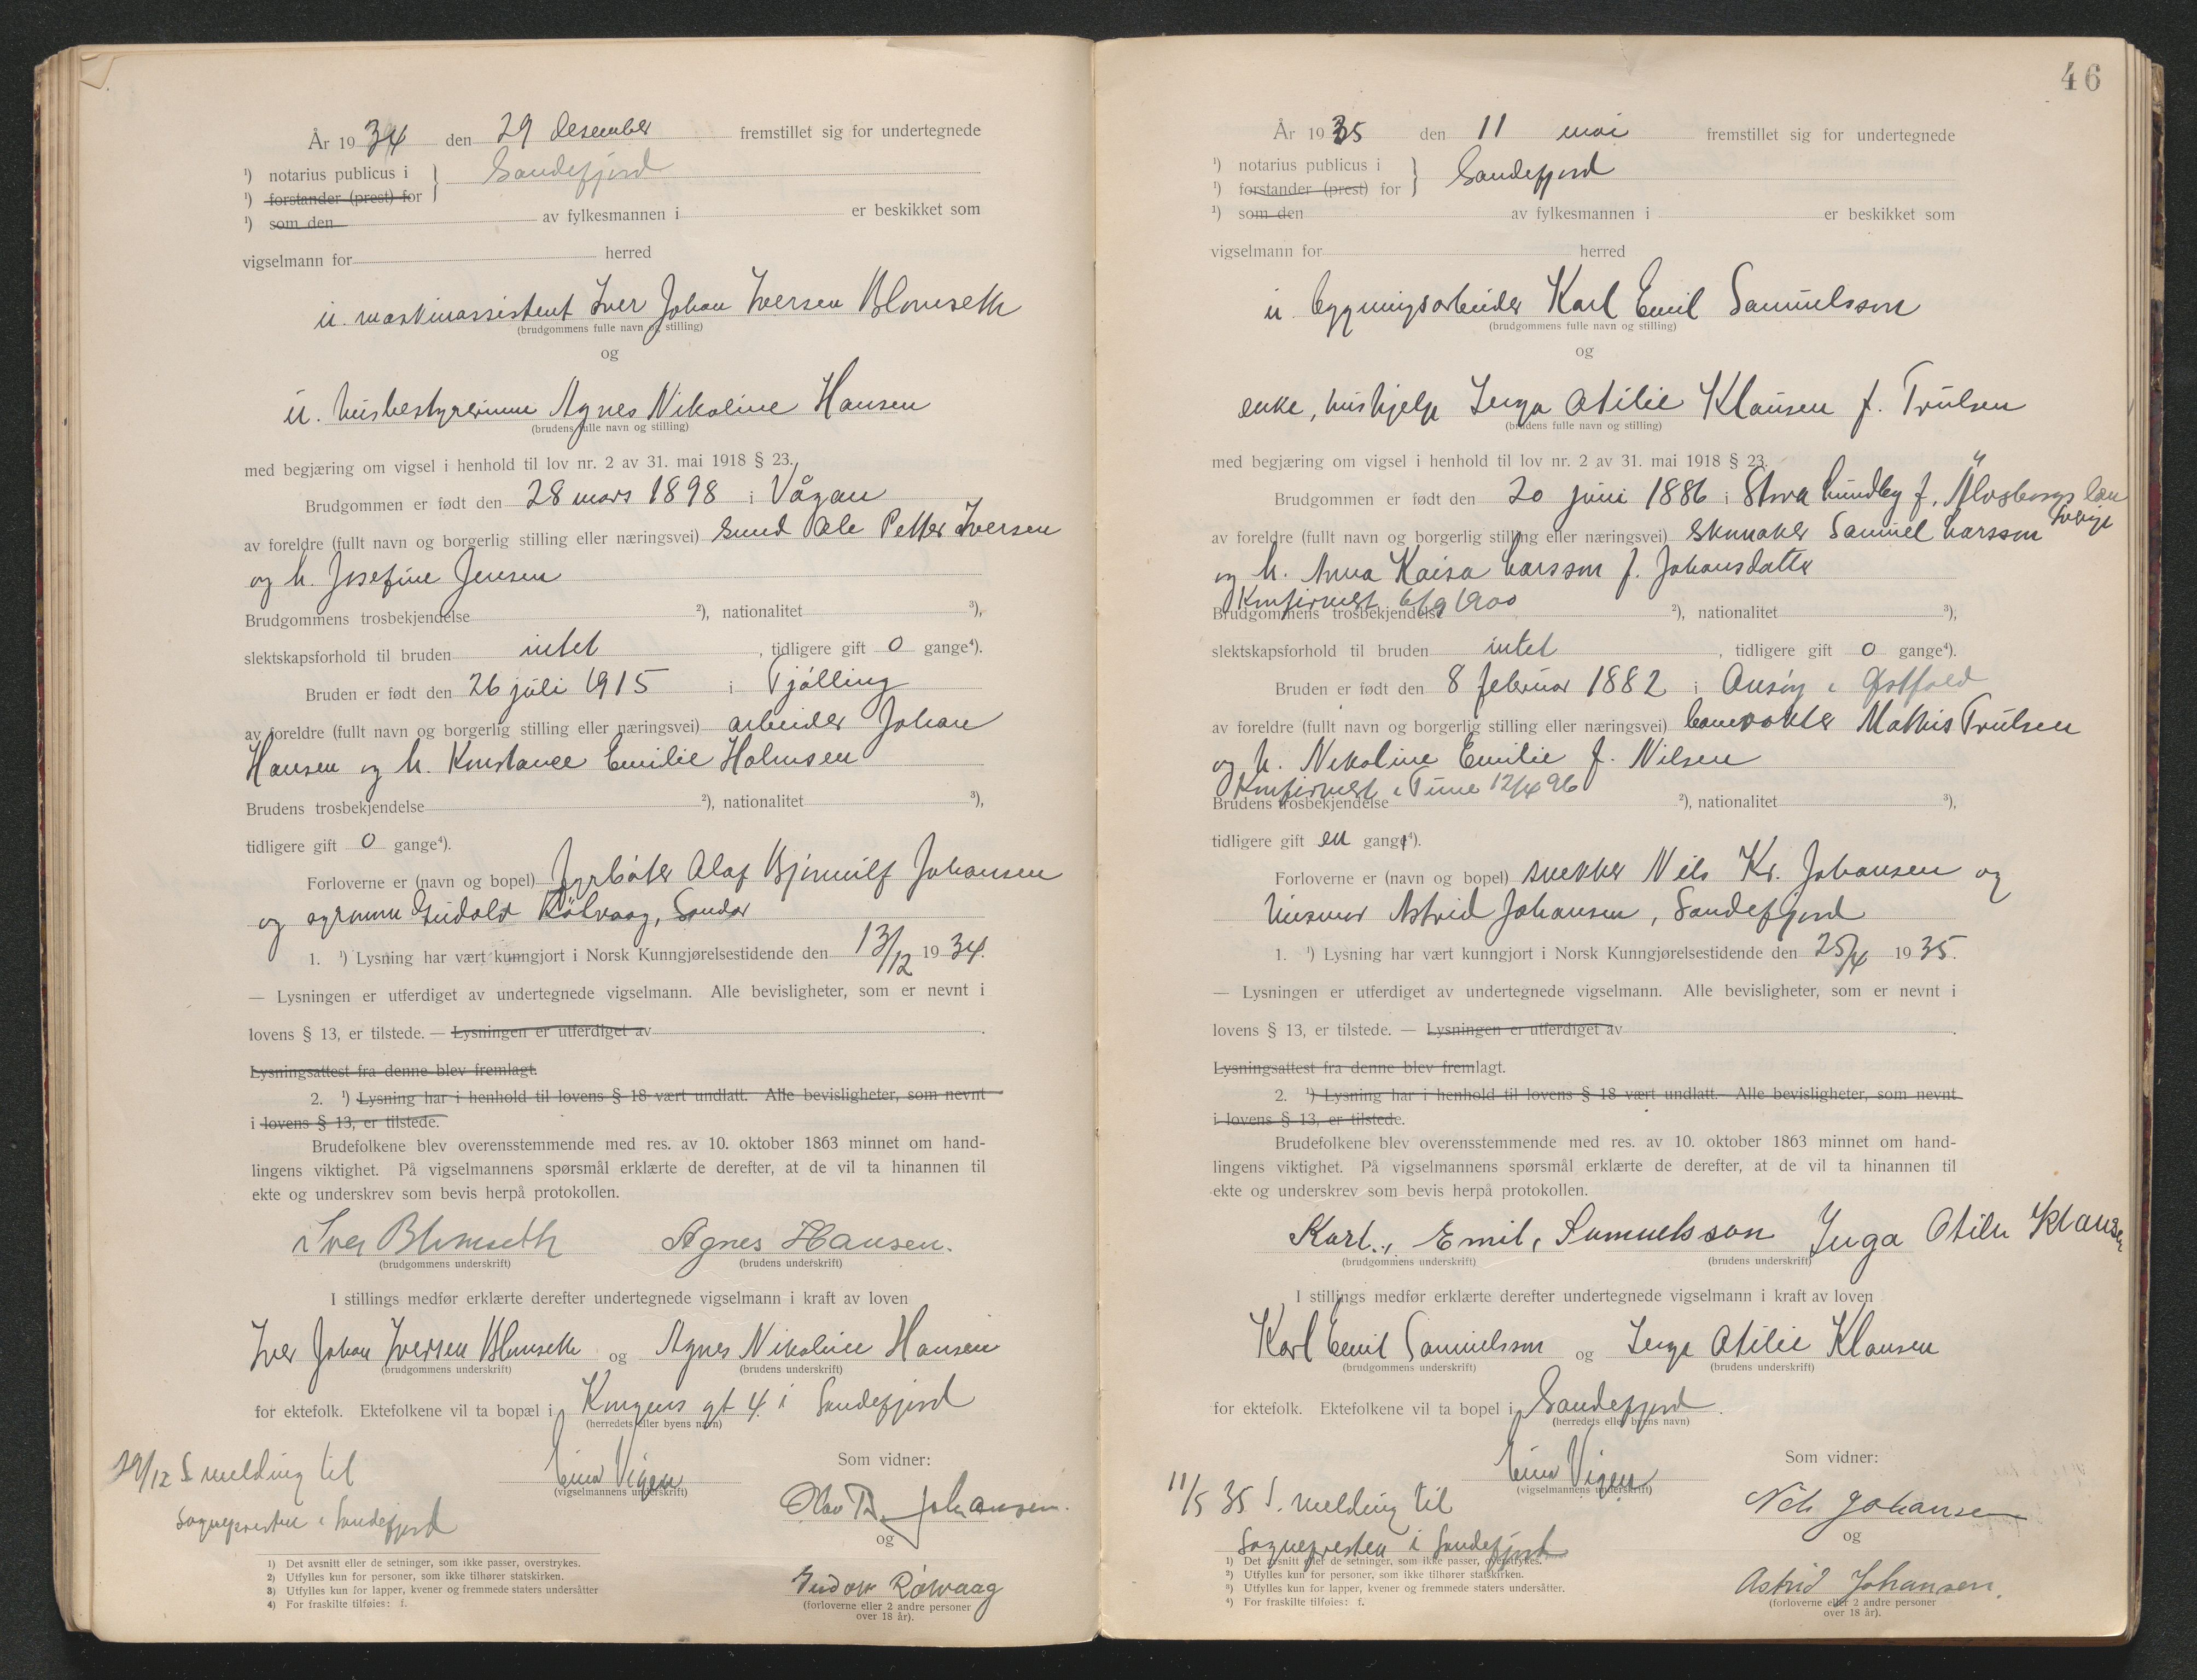 År 1934 den 29 desember fremstillet sig for undertegnede
¹) notarius publicus i } Sandefjord
¹) forstander (prest) for
¹) som den av fylkesmannen i er beskikket som
vigselmann for herred
u. maskinassistent Iver Johan Iversen Blomseth
(brudgommens fulle navn og stilling)
og
u. husbestyrerinne Agnes Nikoline Hansen
(brudens fulle navn og stilling)
med begjæring om vigsel i henhold til lov nr. 2 av 31. mai 1918 § 23.
Brudgommen er født den 28 mars 1898 i Vågan
av foreldre (fullt navn og borgerlig stilling eller næringsvei) Ole Petter Iversen
og h. Josefine Jensen
Brudgommens trosbekjendelse ²), nationalitet ³),
slektskapsforhold til bruden intet, tidligere gift 0 gange⁴).
Bruden er født den 26 juli 1915 i Tjølling
av foreldre (fullt navn og borgerlig stilling eller næringsvei) arbeider Johan
Hansen og h. Konstance Emilie Holmsen
Brudens trosbekjendelse ²), nationalitet ³),
tidligere gift 0 gange⁴).
Forloverne er (navn og bopel) fyrbøter Olaf Bjørnulf Johansen
og Sandar
1. ¹) Lysning har vært kunngjort i Norsk Kunngjørelsestidende den 13/12 1934.
— Lysningen er utferdiget av undertegnede vigselmann. Alle bevisligheter, som er nevnt i
lovens § 13, er tilstede. — Lysningen er utferdiget av .
Lysningsattest fra denne blev fremlagt.
2. ¹) Lysning har i henhold til lovens § 18 vært undlatt. Alle bevisligheter, som nevnt
i lovens § 13, er tilstede.
Brudefolkene blev overensstemmende med res. av 10. oktober 1863 minnet om hand-
lingens viktighet. På vigselmannens spørsmål erklærte de derefter, at de vil ta hinannen til
ekte og underskrev som bevis herpå protokollen.
Iver Blomseth Agnes Hansen.
(brudgommens underskrift) (brudens underskrift)
I stillings medfør erklærte derefter undertegnede vigselmann i kraft av loven
Iver Johan Iversen Blomseth og Agnes Nikoline Hansen
(brudgommens underskrift) (brudens underskrift)
for ektefolk. Ektefolkene vil ta bopæl i Kongens gt 4 i Sandefjord
(herredets eller byens navn)
29/12 S. melding til
sognepresten i Sandefjord
Einar Vigen
(vigselmannens underskrift)
Som vidner:
Olav B. Johansen.
og
(forloverne eller 2 andre personer
over 18 år).
1) Det avsnitt eller de setninger, som ikke passer, overstrykes.
2) Utfylles kun for personer, som ikke tilhører statskirken.
3) Utfylles kun for lapper, kvener og fremmede staters undersåtter
4) For fraskilte tilføies: f.
46
År 1935 den 11 mai fremstillet sig for undertegnede
¹) notarius publicus i } Sandefjord
¹) forstander (prest) for
¹) som den av fylkesmannen i er beskikket som
vigselmann for herred
u bygningsarbeider Karl Emil Samuelsson
(brudgommens fulle navn og stilling)
og
enke, hushjelp Inga Otilie Klausen f. Trulsen
(brudens fulle navn og stilling)
med begjæring om vigsel i henhold til lov nr. 2 av 31. mai 1918 § 23.
Brudgommen er født den 20 juni 1886 i Stora Lundby f. Älvsborgs län
Sverige
av foreldre (fullt navn og borgerlig stilling eller næringsvei) skomaker Samuel Larsson
og h. Anna Kaisa Larsson f. Johansdatter
Konfirmert 6/9 1900
Brudgommens trosbekjendelse ²), nationalitet ³),
slektskapsforhold til bruden intet, tidligere gift 0 gange⁴).
Bruden er født den 8 februar 1882 i Onsøy i Østfold
av foreldre (fullt navn og borgerlig stilling eller næringsvei) banevokter Mathis Trulsen
og h. Nikoline Emilie f. Nilsen
Konfirmert i Tune 12/4 96
Brudens trosbekjendelse ²), nationalitet ³),
tidligere gift en gang⁴).
Forloverne er (navn og bopel) snekker Nils Kr. Johansen og
husmor Astrid Johansen, Sandefjord
1. ¹) Lysning har vært kunngjort i Norsk Kunngjørelsestidende den 25/4 1935.
— Lysningen er utferdiget av undertegnede vigselmann. Alle bevisligheter, som er nevnt i
lovens § 13, er tilstede. — Lysningen er utferdiget av .
Lysningsattest fra denne blev fremlagt.
2. ¹) Lysning har i henhold til lovens § 18 vært undlatt. Alle bevisligheter, som nevnt
i lovens § 13, er tilstede.
Brudefolkene blev overensstemmende med res. av 10. oktober 1863 minnet om hand-
lingens viktighet. På vigselmannens spørsmål erklærte de derefter, at de vil ta hinannen til
ekte og underskrev som bevis herpå protokollen.
Karl, Emil, Samuelsson Inga Otilie Klausen
(brudgommens underskrift) (brudens underskrift)
I stillings medfør erklærte derefter undertegnede vigselmann i kraft av loven
Karl Emil Samuelsson og Inga Otilie Klausen
(brudgommens underskrift) (brudens underskrift)
for ektefolk. Ektefolkene vil ta bopel i Sandefjord.
(herredets eller byens navn)
11/5 35 S. melding til
Sognepresten i Sandefjord
Einar Vigen
(vigselmannens underskrift)
Som vidner:
Nils Johansen
og
Astrid Johansen.
(forloverne eller 2 andre personer
over 18 år).
¹) Det avsnitt eller de setninger, som ikke passer, overstrykes.
²) Utfylles kun for personer, som ikke tilhører statskirken.
³) Utfylles kun for lapper, kvener og fremmede staters undersåtter.
⁴) For fraskilte tilføies: f.